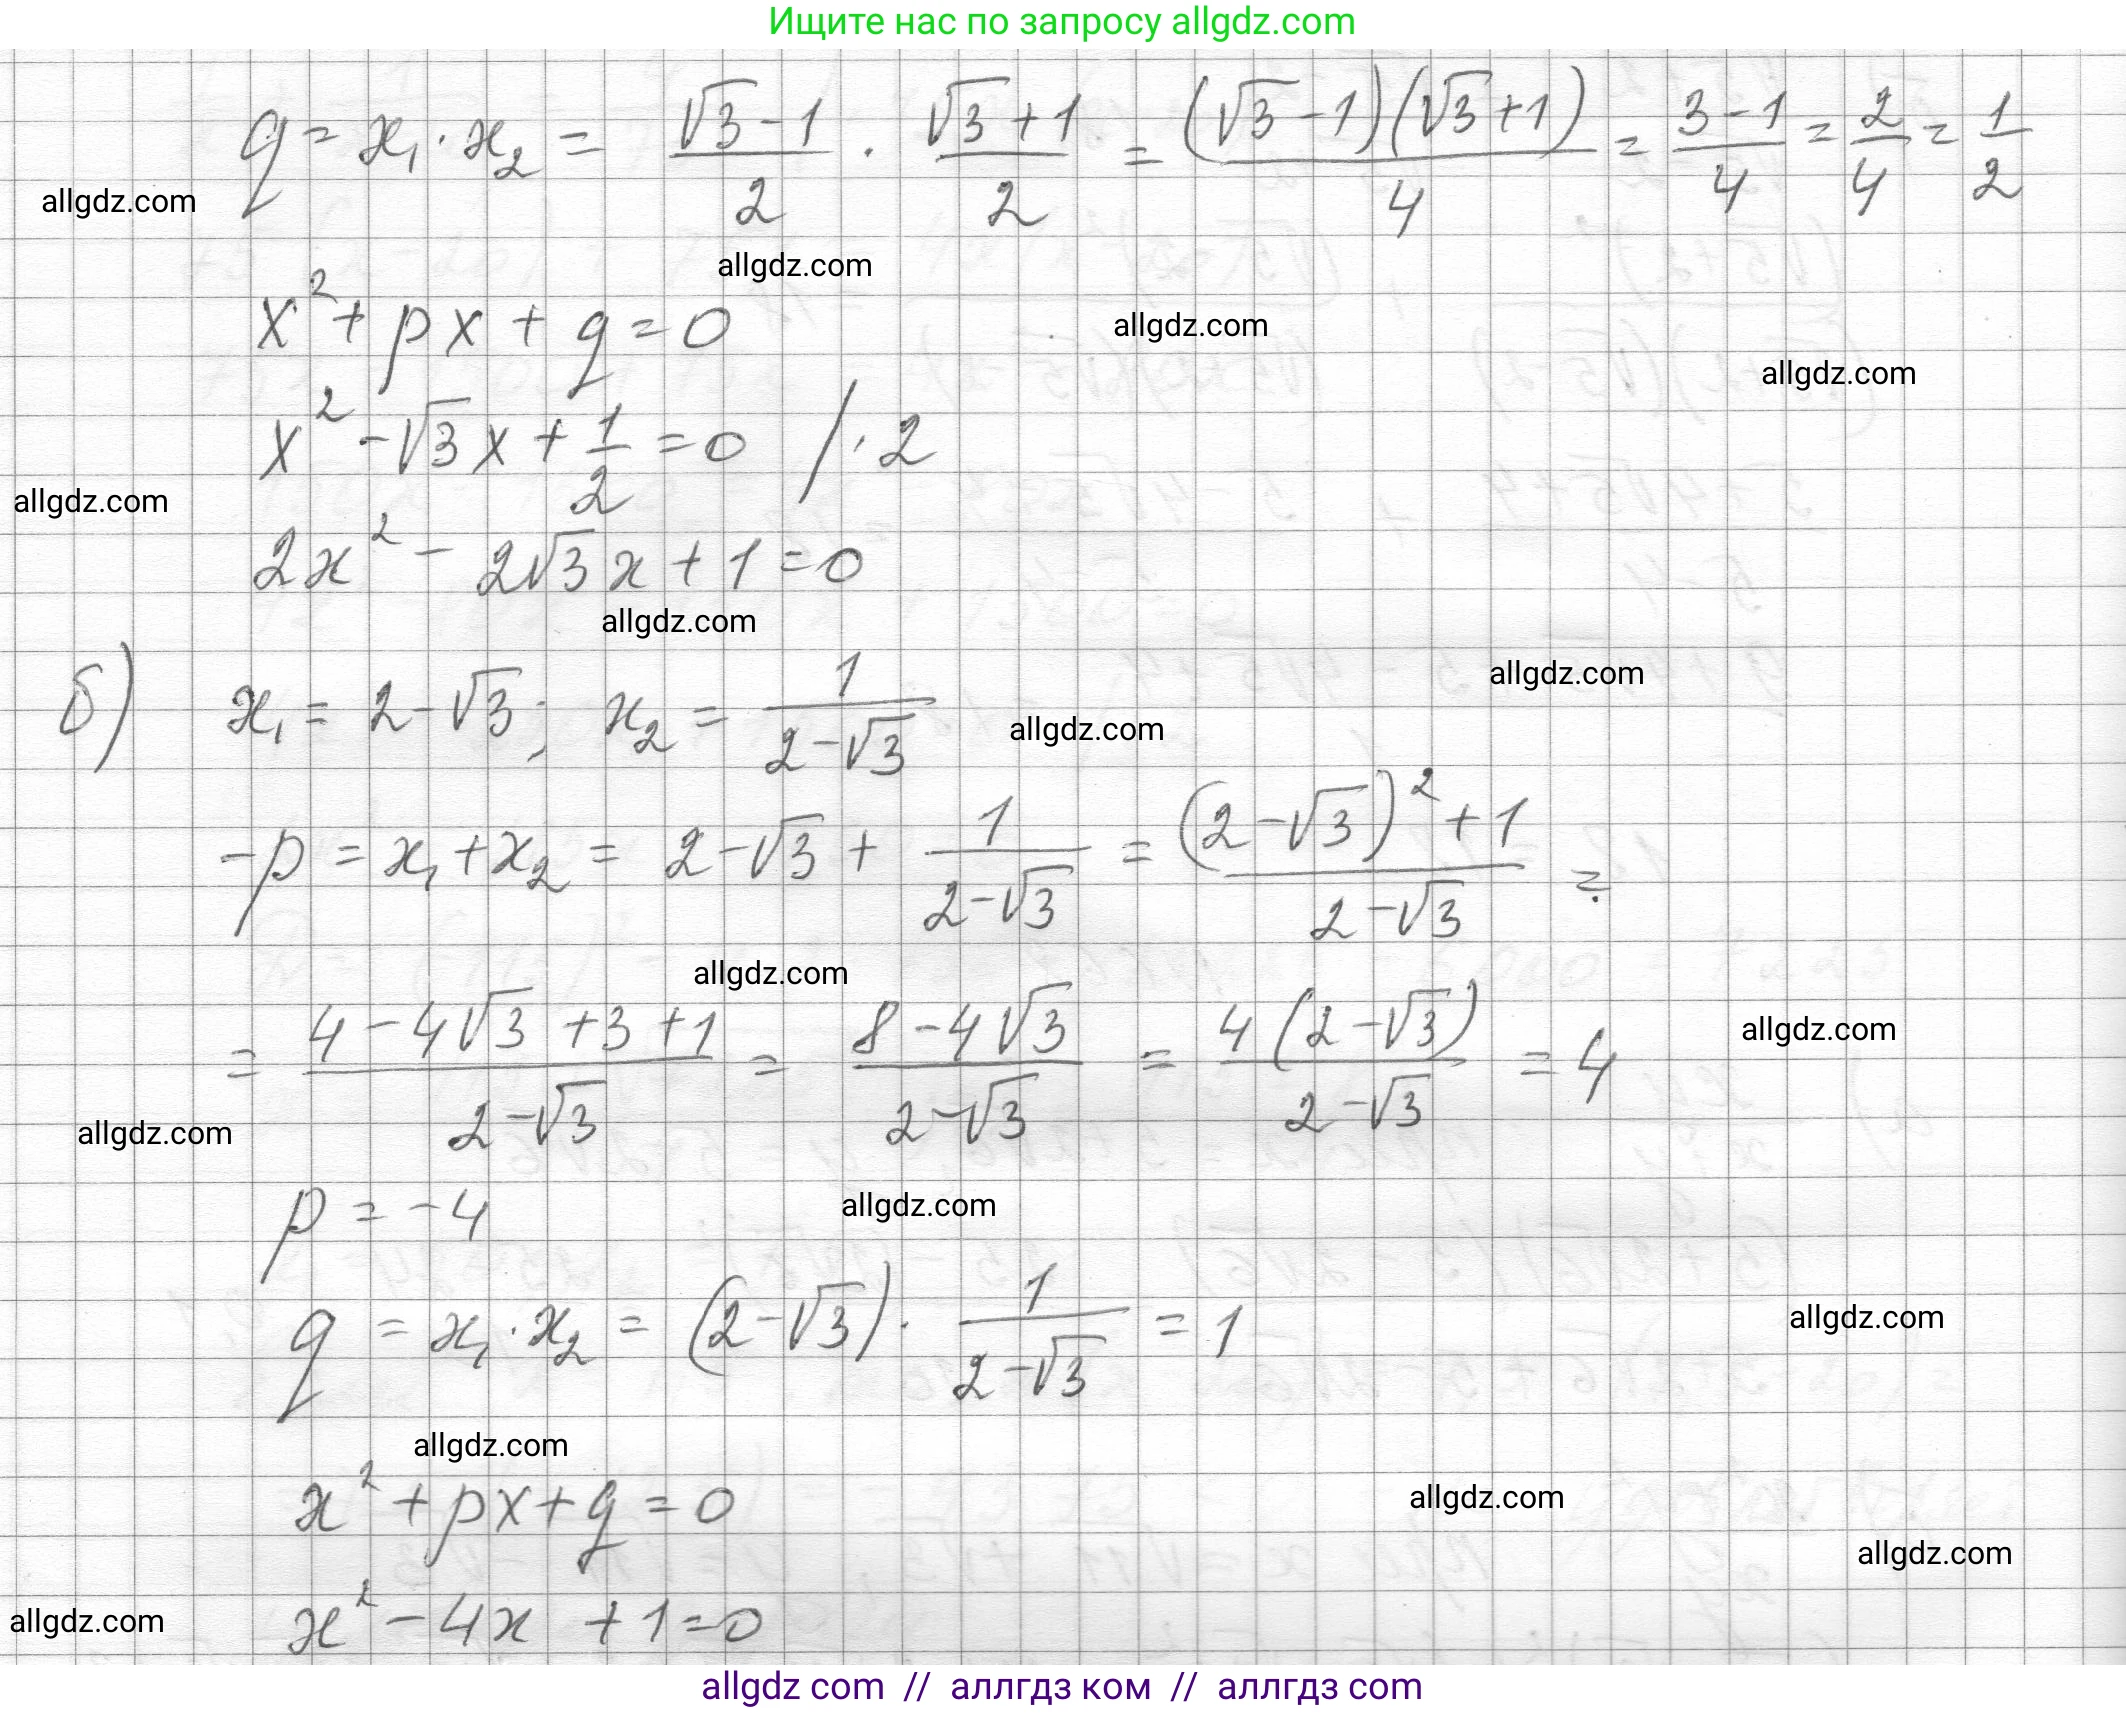 Ищите нас по запросу allgdz.com
q = x₁ · x₂ = (√3 - 1)/2 · (√3 + 1)/2 = ((√3 - 1)(√3 + 1))/4 = (3 - 1)/4 = 2/4 = 1/2
allgdz.com
allgdz.com
x² + px + q = 0
allgdz.com
allgdz.com
x² - √3x + 1/2 = 0 / · 2
allgdz.com
2x² - 2√3x + 1 = 0
allgdz.com
б) x₁ = 2 - √3; x₂ = 1/(2 - √3)
allgdz.com
allgdz.com
-p = x₁ + x₂ = 2 - √3 + 1/(2 - √3) = ((2 - √3)² + 1)/(2 - √3) =
allgdz.com
= (4 - 4√3 + 3 + 1)/(2 - √3) = (8 - 4√3)/(2 - √3) = (4(2 - √3))/(2 - √3) = 4
allgdz.com
allgdz.com
p = -4
allgdz.com
q = x₁ · x₂ = (2 - √3) · 1/(2 - √3) = 1
allgdz.com
allgdz.com
x² + px + q = 0
allgdz.com
allgdz.com
x² - 4x + 1 = 0
allgdz.com
allgdz com // аллгдз ком // аллгдз com